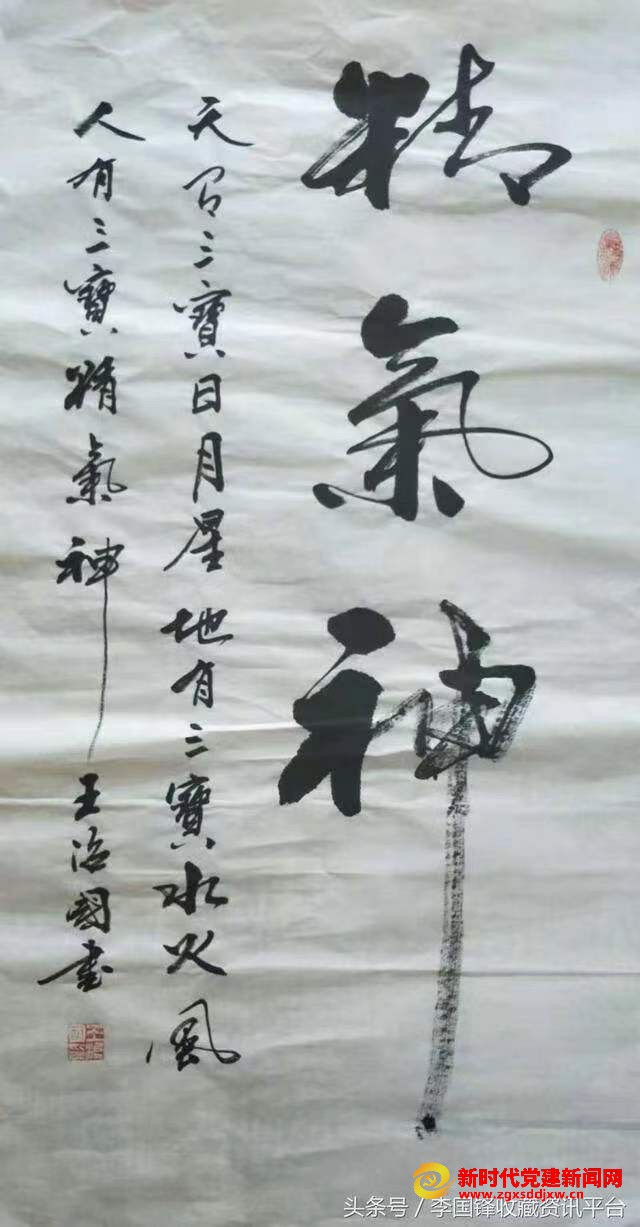 精氣神
天有三寶日月星地有三寶水火風
人有三寶精氣神
王治國書
新时代党建新闻网
www.zgxsddjxw.cn
头条号／李国锋收藏资讯平台